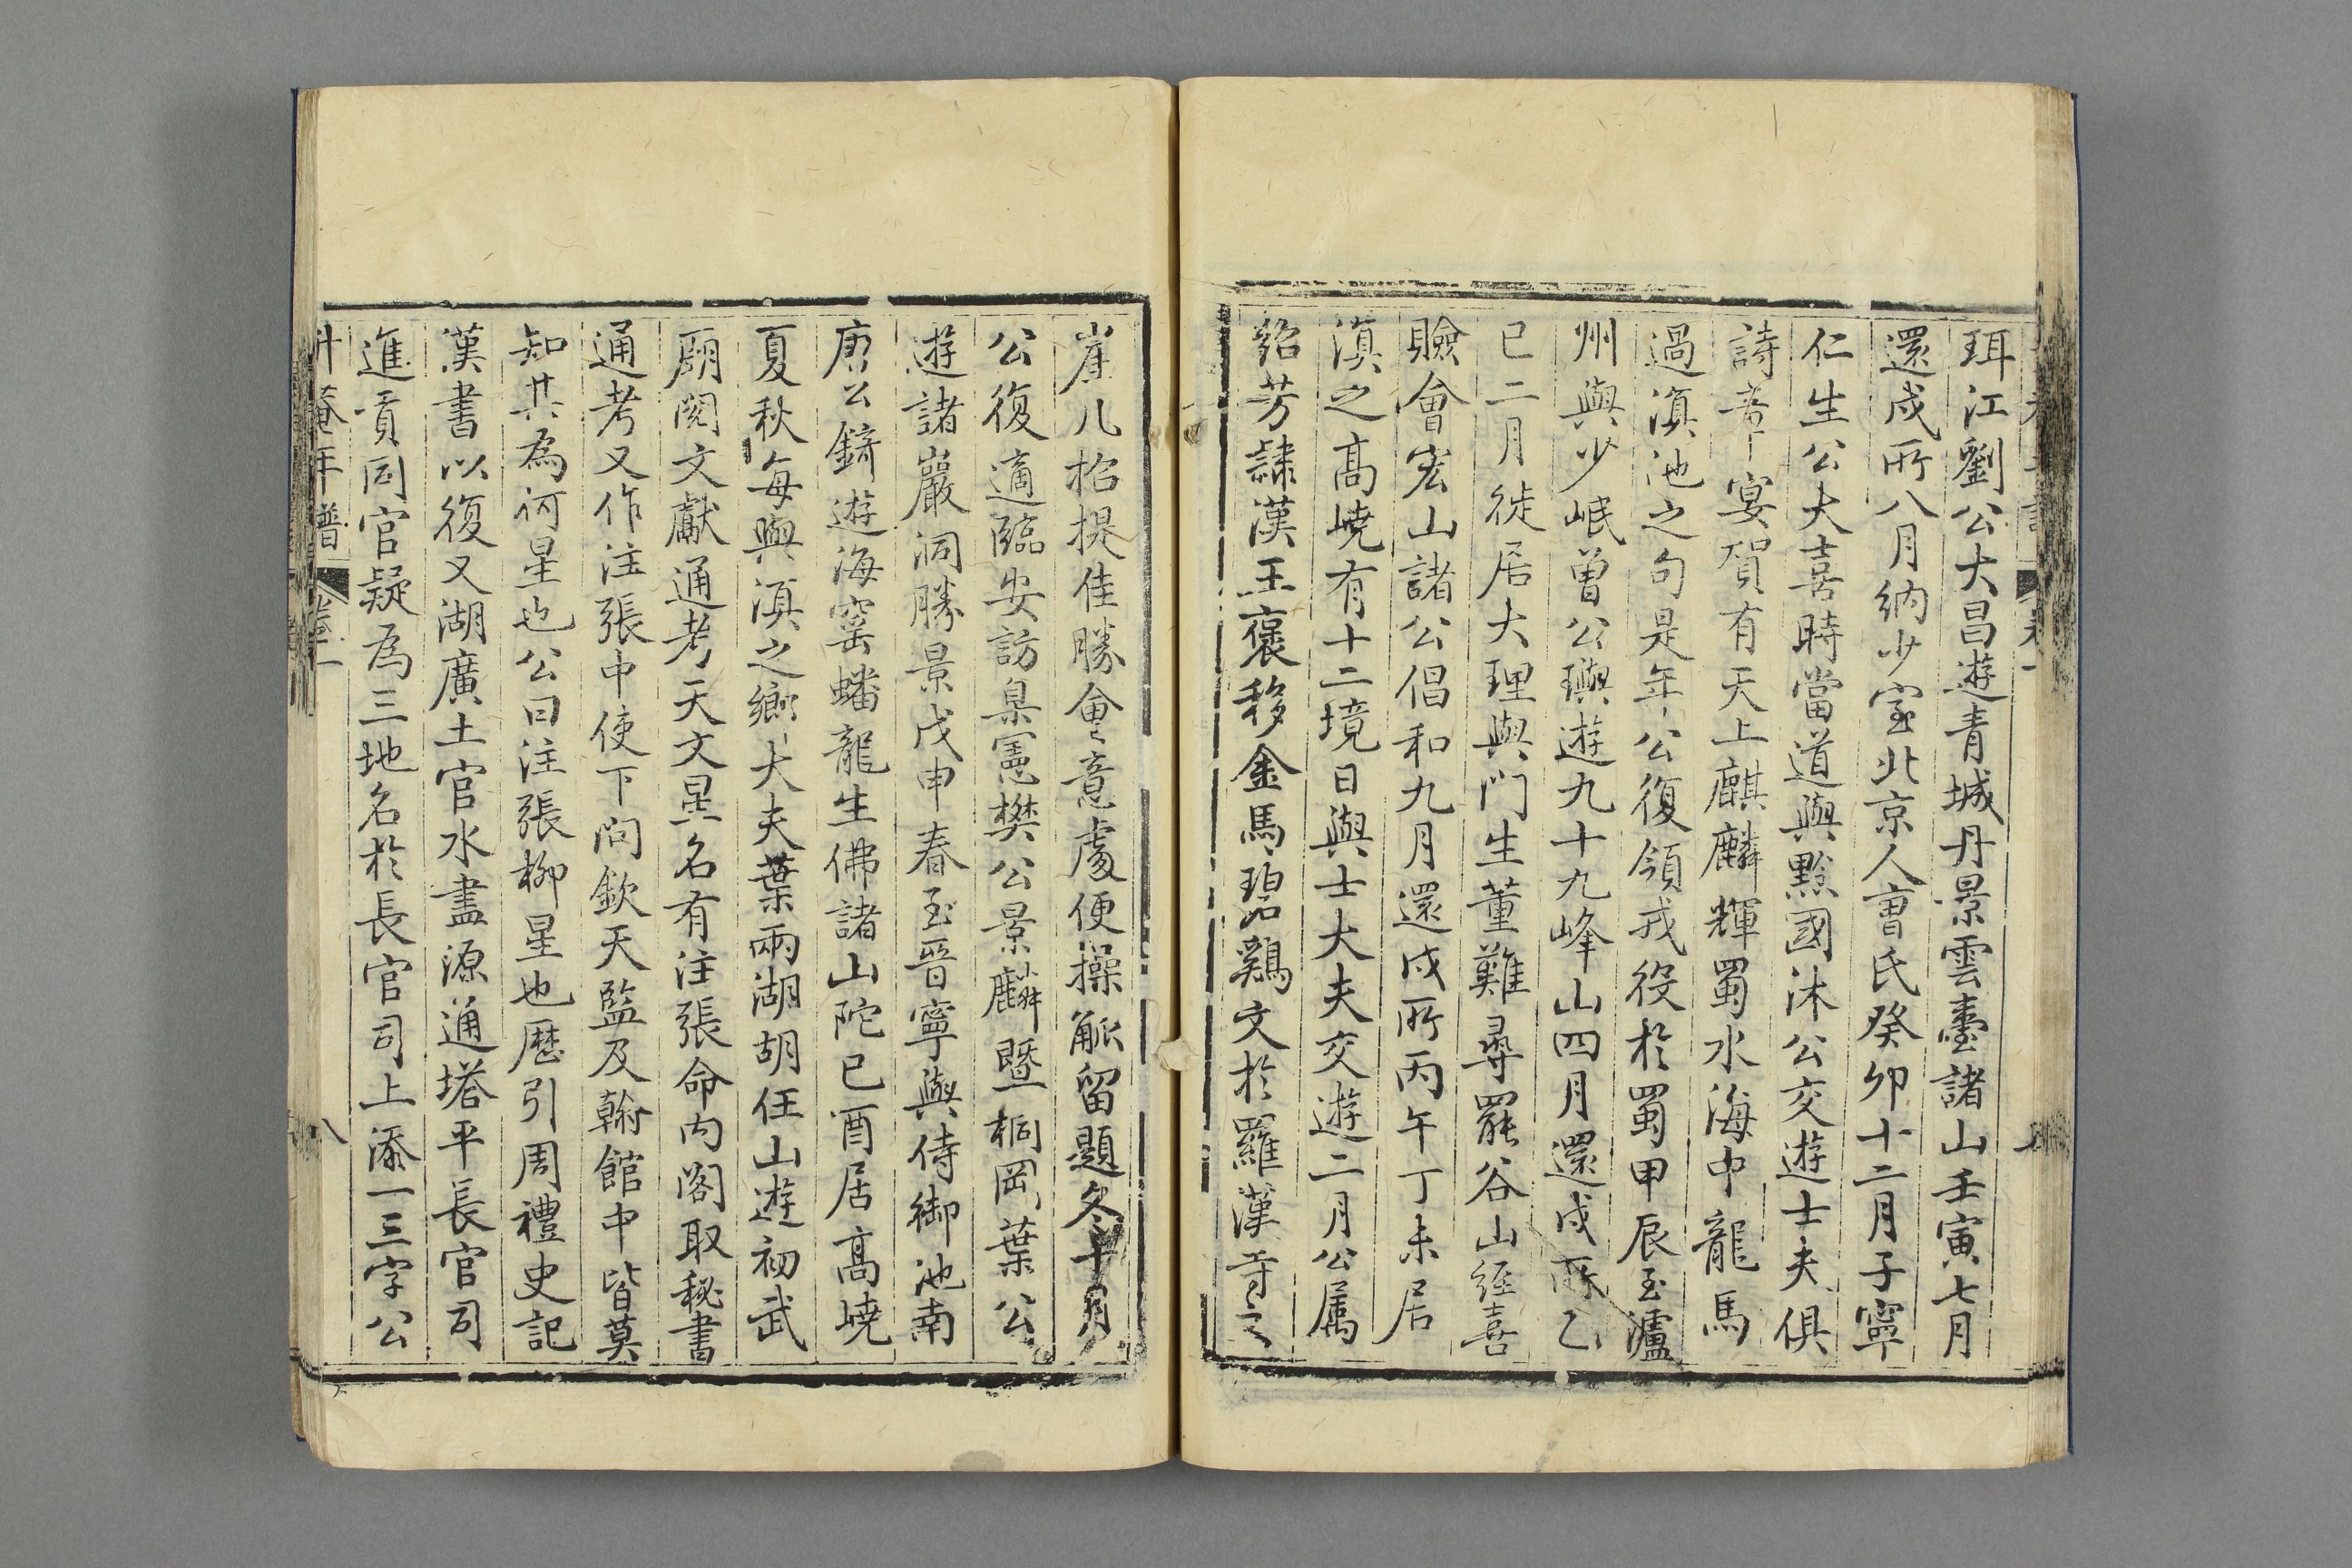 珥江劉公大昌遊青城丹景雲臺諸山壬寅七月
還戍所八月納少室北京人曺氏癸卯十二月子寧
仁生公大喜時當道與黔國沐公交遊士夫俱
詩者宴賀有天上麒麟輝蜀水海中龍馬
過滇池之句是年公復領戎役於蜀甲辰至瀘
州與少岷曽公璵遊九十九峰山四月還戍所乙
巳二月徙居大理與門生董難尋罷谷山經喜
瞼會宏山諸公倡和九月還戍所丙午丁未居
滇之髙嶢有十二境日與士大夫交遊二月公属
銘芳隷漢王褒移金馬碧鷄文於羅漢寺之
崖凡招提佳勝會意處便操觚留題冬十月
公復適臨安訪臬憲樊公景麟暨桐岡葉公
遊諸巖洞勝景戊申春至晋寧與侍御池南
唐公錡遊海窰蟠龍生佛諸山陀已酉居髙嶢
夏秋每與滇之鄉大夫葉兩湖胡在山遊初武
廟閱文獻通考天文星名有注張命内閣取秘書
通考又作注張中使下問欽天監及翰館中皆莫
知其為何星也公曰注張柳星也歴引周禮史記
漢書以復又湖廣土官水盡源通塔平長官司
進貢同官疑為三地名於長官司上添一三字公
升菴年譜 卷一 八